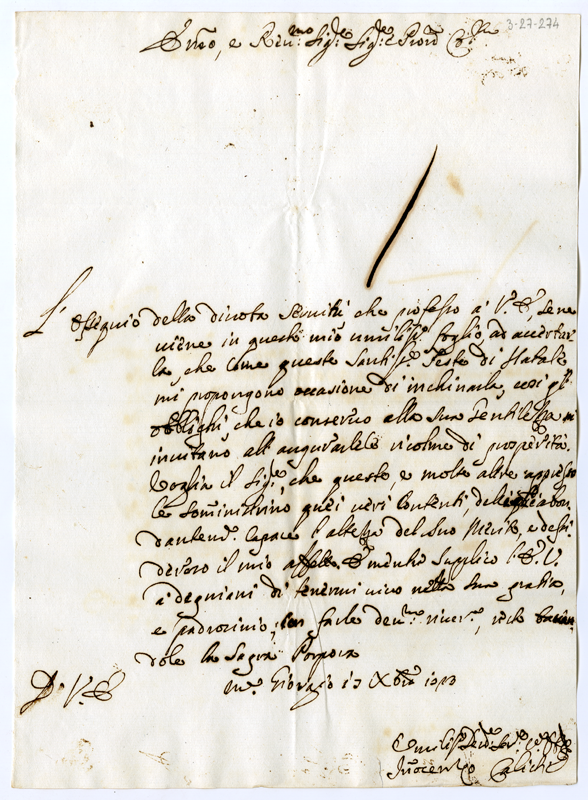 3-27-274
Em̃o, e Reu.mo Sig.re Sig.re e Pron
L'ossequio della diuota seruitù che professo a V. E. sene
uiene in questo mio umiliss.o foglio ad accertar
la, che come queste Santiss.e Feste di Natale
mi propongono occasione di inchinarla, cosi gl'
obblighi che io conseruo alla sua Gentilezza m'
inuitano all'augurarlele ricolme di prosperità.
Voglia il Sig.re, che queste, e molte altre appresso
le somministrino quei ueri contenti, de quali abon
dantem.te capace l'altezza del suo Merito, e desi
deroso il mio affetto E mentre supplico l'E. V.
a degniarsi di tenermi uiuo nella sua gratia,
e padrocinio, con farle deu.ma riuer.a, resto bacian
dole la Sagra Porpora
D. V. E.
13 Xbre
Umiliss.o Deu.o Ser.e
Innocentio